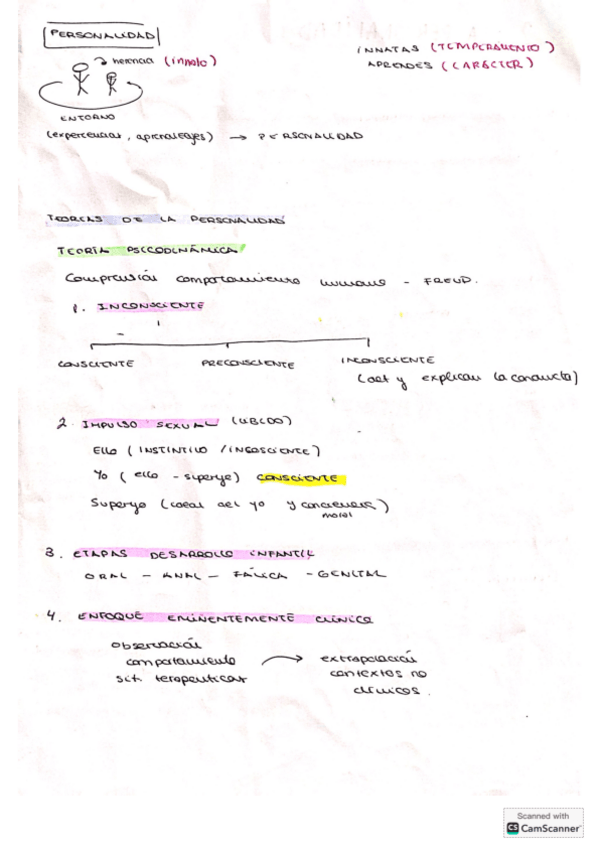 PERSONALIDAD
herencia (innato)
INNATAS (TEMPERAMENTO)
APRENDES (CARÁCTER)
ENTORNO
(experiencias, aprendizajes) → PERSONALIDAD
TEORÍAS DE LA PERSONALIDAD
TEORÍA PSICODINÁMICA
Comprensión comportamiento humano - FREUD.
1. INCONSCIENTE
CONSCIENTE PRECONSCIENTE INCONSCIENTE
y explican la conducta)
2. IMPULSO SEXUAL (LIBIDO)
Ello (INSTINTIVO / INCOSCIENTE)
Yo (ello - superyo) CONSCIENTE
Superyo (ideal del yo y conciencia
moral)
3. ETAPAS DESARROLLO INFANTIL
ORAL - ANAL - FÁLICA - GENITAL
4. ENFOQUE EMINENTEMENTE CLÍNICO
observación
comportamiento → extrapolación
sit. terapeuticas contextos no
clínicos.
Scanned with
CS CamScanner